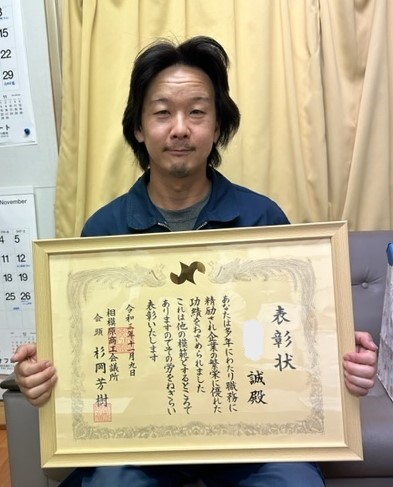 表彰状
誠殿
あなたは多年にわたり職務に
精励され企業の繁栄に優れた
功績をおさめられました
これは他の模範とするところで
ありますのでその労をねぎらい
表彰いたします
令和三年十一月九日
相模原商工会議所
会頭 杉岡芳樹
November
4 5
11 12
18 19
25 26